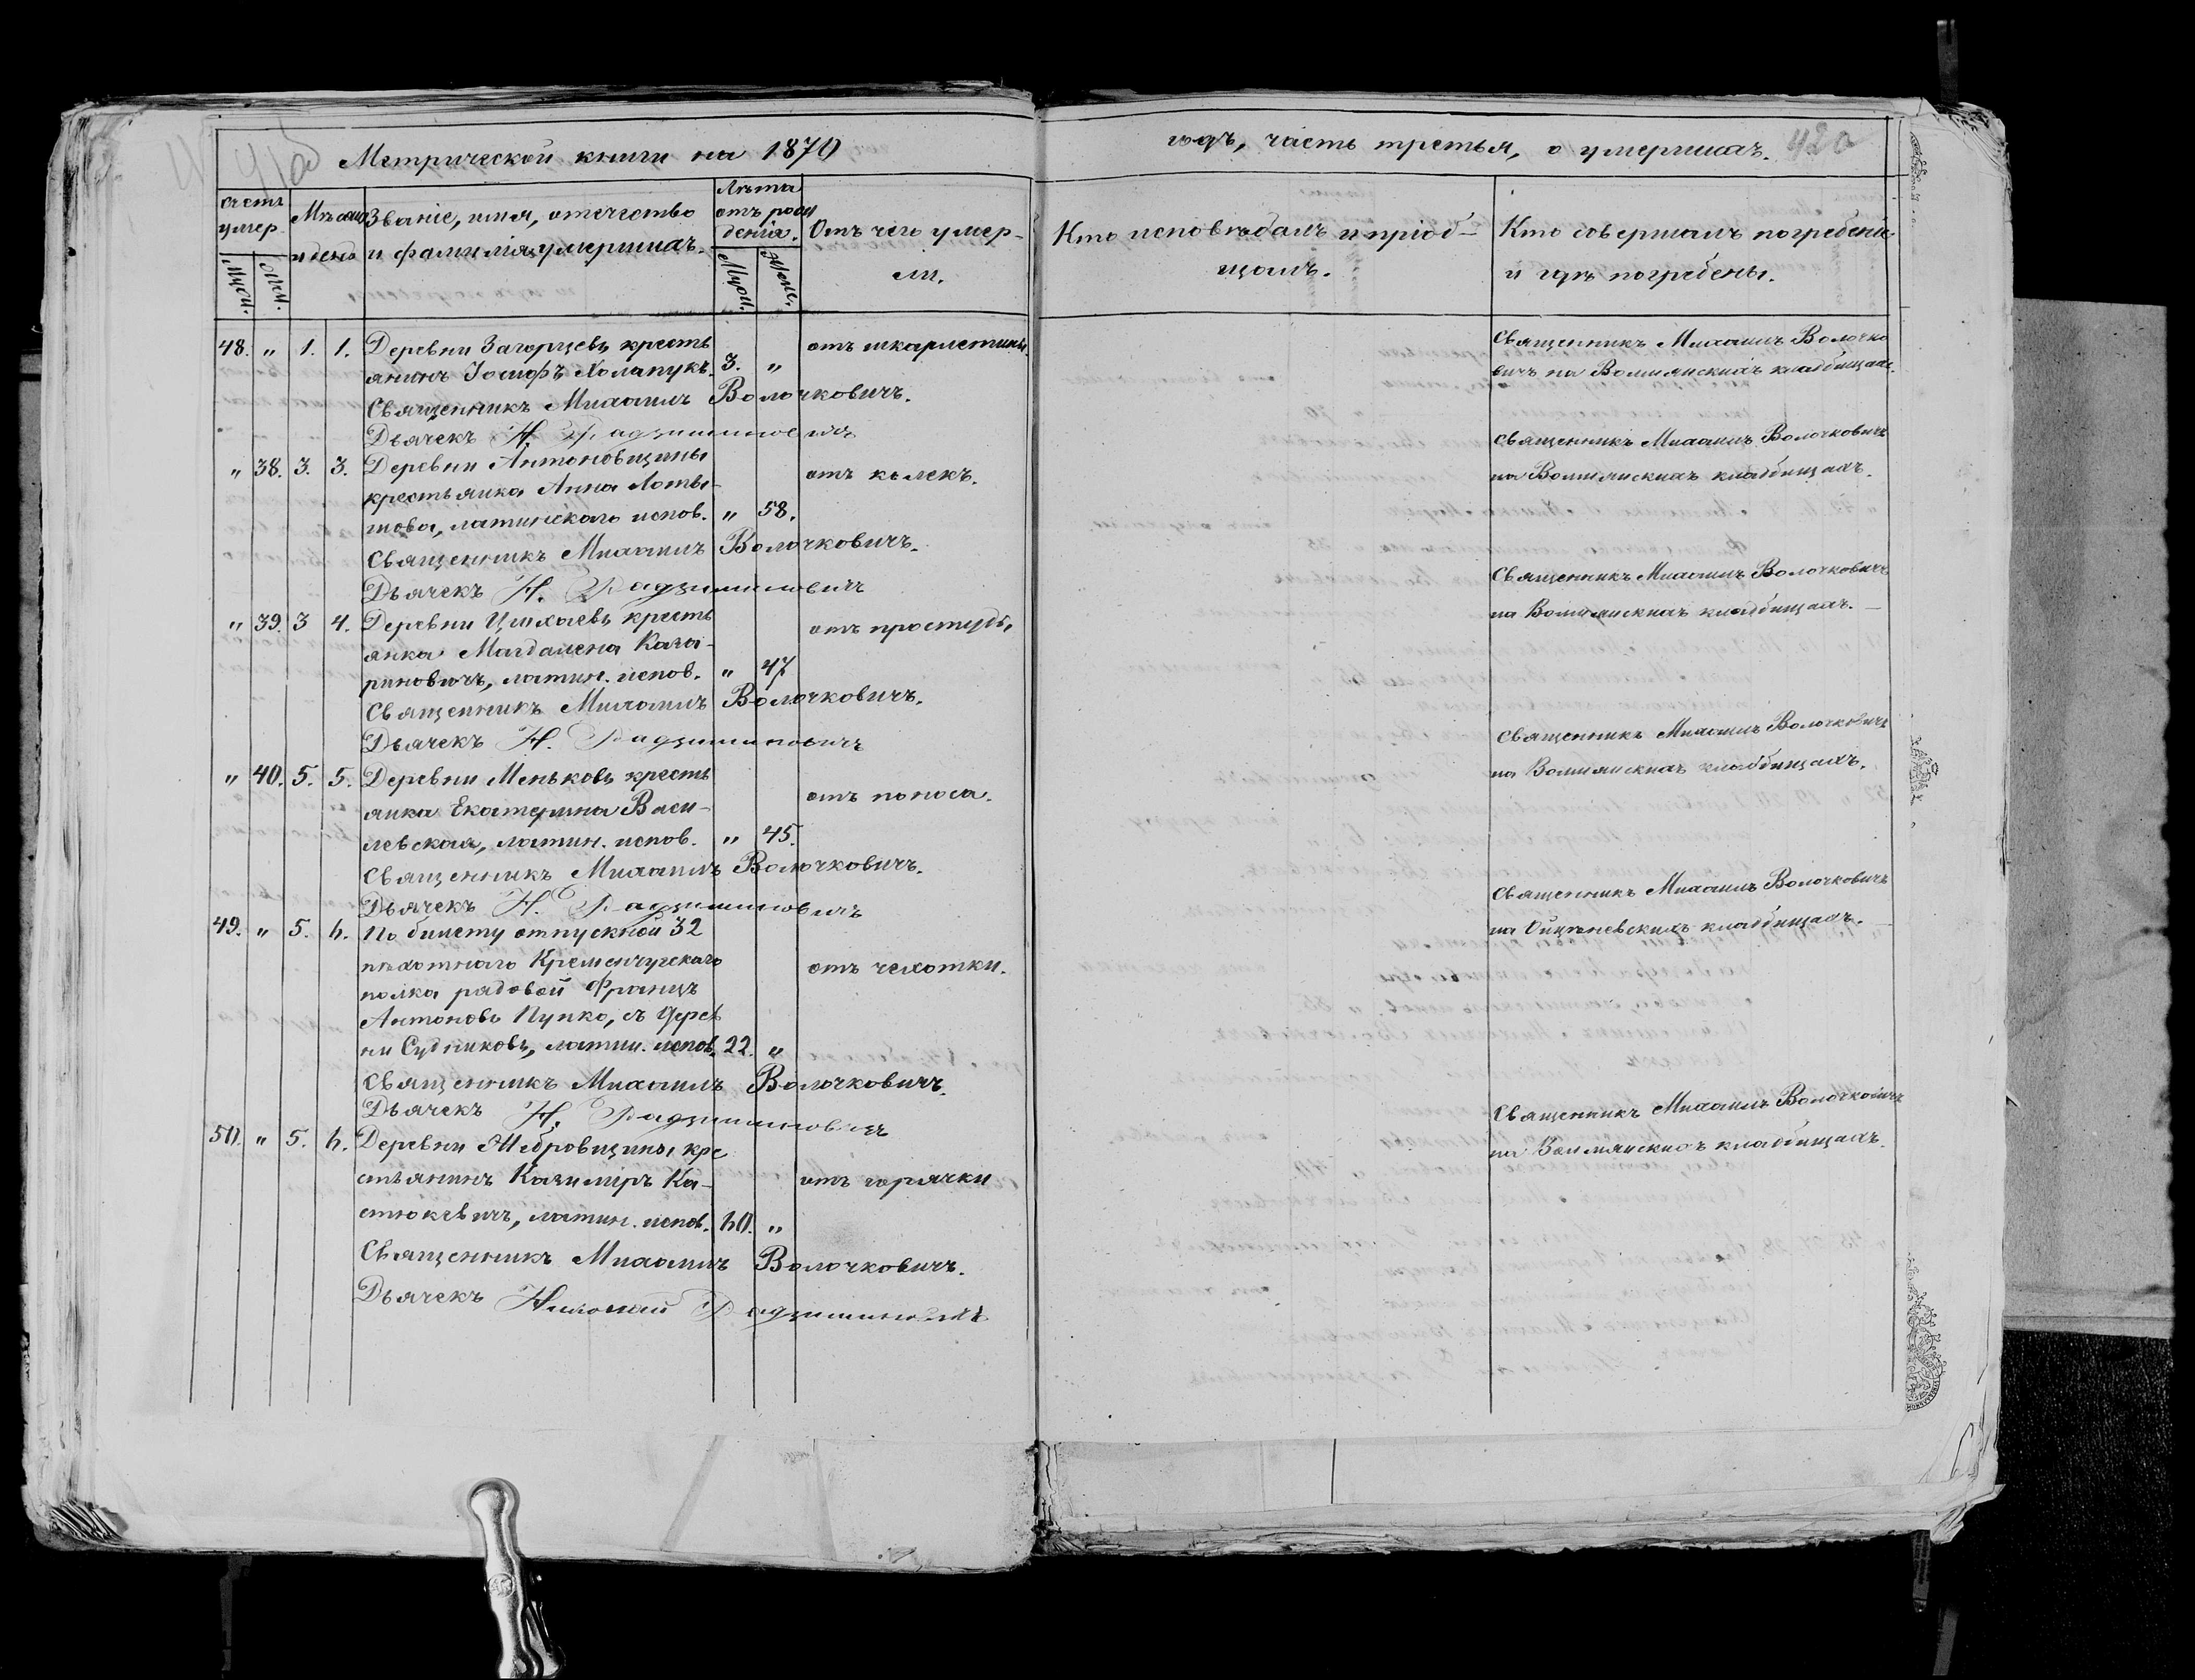 Метрической книги на 1870
годъ, часть третья, о умершихъ. 420
Счетъ умер.
Муж. Жен.
Мѣсяцъ и день
Званіе, имя, отечество
и фамилія умершихъ.
Лѣта
отъ рож
денія.
Муж. Жен.
Отъ чего умер-
ли.
Кто исповѣдалъ и пріоб-
щалъ.
Кто совершалъ погребеніе
и гдѣ погребены.
48. " 1. 1. Деревни Загорцевъ кресть
янинъ Іосифъ Холапукъ. 3. "
отъ шкарлетины.
Священникъ Михаилъ Волочковичъ.
Дьячекъ Н. Радзиминовичъ
Священникъ Михаилъ Волочко
вичъ на Волмянскихъ кладбищахъ.
" 38. 3. 3. Деревни Антоновщины
крестьянка Анна Лоты-
шова, латинскаго испов. " 58.
отъ колекъ.
Священникъ Михаилъ Волочковичъ.
Дьячекъ Н. Радзиминовичъ
Священникъ Михаилъ Волочковичъ
на Волмянскихъ кладбищахъ.
" 39. 3 4. Деревни кресть
янка Магдалена Каза-
риновичъ, латин. испов. " 47
отъ простуды
Священникъ Михаилъ Волочковичъ.
Дьячекъ Н. Радзиминовичъ
Священникъ Михаилъ Волочковичъ
на Волмянскихъ кладбищахъ.
" 40. 5. 5. Деревни Меньковъ кресть
янка Екатерина Васи-
левская, латин. испов. " 45.
отъ поноса.
Священникъ Михаилъ Волочковичъ.
Дьячекъ Н. Радзиминовичъ
Священникъ Михаилъ Волочковичъ
на Волмянскихъ кладбищахъ.
49. " 5. 6. По билету отпускной 32
пѣхотнаго Кременчугскаго
полка рядовой Францъ
Антоновъ Пупко, съ дерев
ни Судниковъ, латин. испов. 22. "
отъ чехотки.
Священникъ Михаилъ Волочковичъ.
Дьячекъ Н. Радзиминовичъ
Священникъ Михаилъ Волочковичъ
на кладбищахъ.
50. " 5. 6. Деревни кре
стьянинъ Казиміръ Ка-
стюкевичъ, латин. испов. 60. "
отъ горячки
Священникъ Михаилъ Волочковичъ.
Дьячекъ Николай Радзиминовичъ
Священникъ Михаилъ Волочковичъ
на Волмянскихъ кладбищахъ.